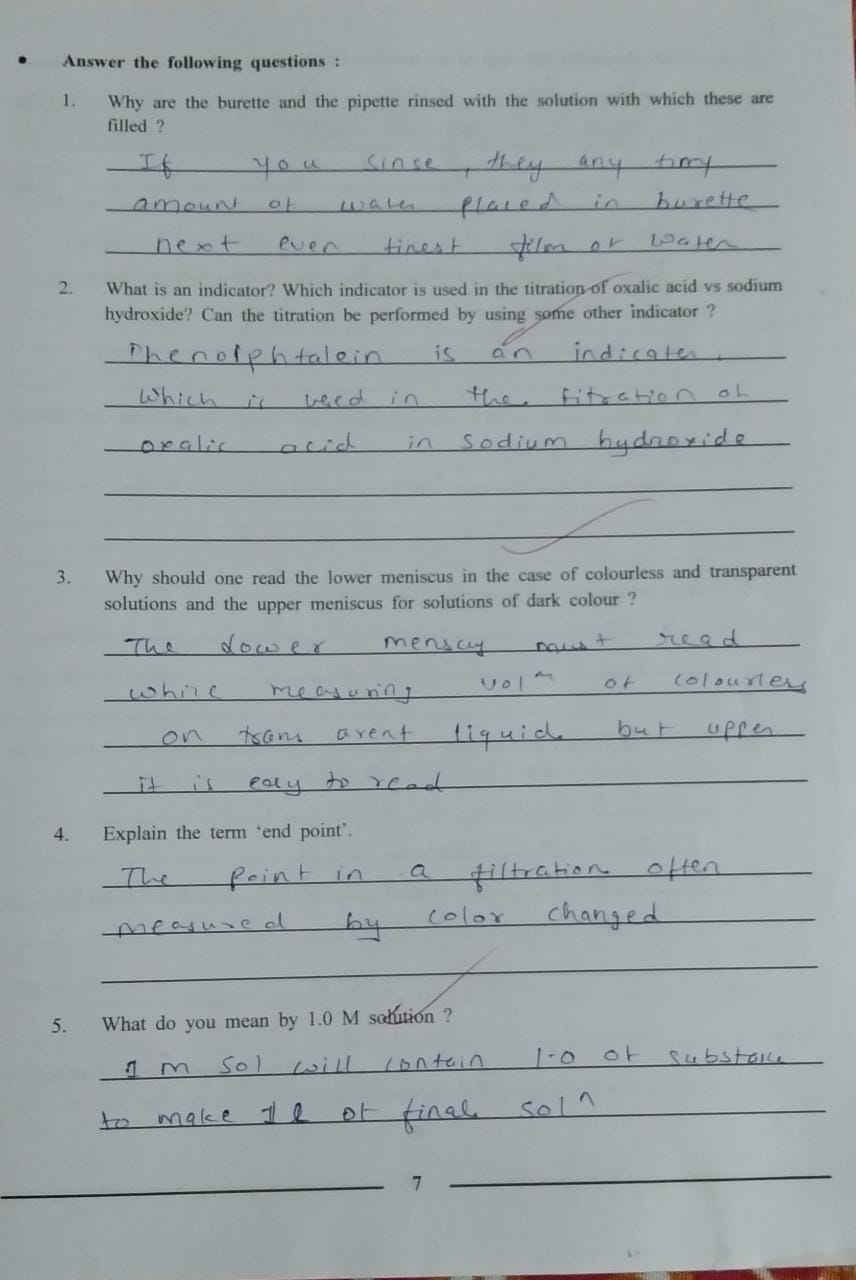 • Answer the following questions :
1. Why are the burette and the pipette rinsed with the solution with which these are
filled ?
If you sinse, they any tiny
amount of water placed in burette
next even finest film or water
2. What is an indicator? Which indicator is used in the titration of oxalic acid vs sodium
hydroxide? Can the titration be performed by using some other indicator ?
Phenolphtalein is an indicater,
which is used in the titration of
oxalic acid in sodium hydroxide
3. Why should one read the lower meniscus in the case of colourless and transparent
solutions and the upper meniscus for solutions of dark colour ?
The lower must read
while measuring vol^m of colourless
on trans arent liquid but upper
it is easy to read
4. Explain the term ‘end point’.
The point in a filtration often
measured by color changed
5. What do you mean by 1.0 M solution ?
1 m sol will contain 1-0 of substance
to make 1 l of final sol^n
7